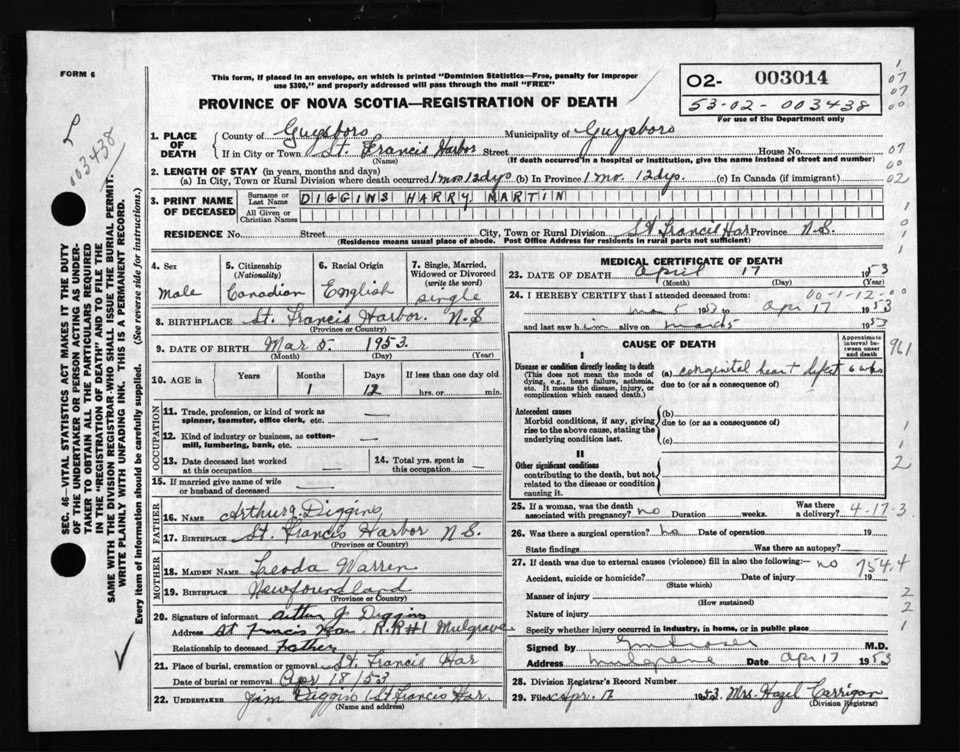 FORM 6
This form, if placed in an envelope, on which is printed "Dominion Statistics—Free, penalty for improper
use $300," and properly addressed will pass through the mail "FREE"
PROVINCE OF NOVA SCOTIA—REGISTRATION OF DEATH
O2- 003014
53-02-003438
For use of the Department only
003438
SEC. 46 VITAL STATISTICS ACT MAKES IT THE DUTY
OF THE UNDERTAKER OR PERSON ACTING AS UNDER-
TAKER TO OBTAIN ALL THE PARTICULARS REQUIRED
IN THE "REGISTRATION OF DEATH" AND TO FILE THE
SAME WITH THE DIVISION REGISTRAR WHO SHALL ISSUE THE BURIAL PERMIT.
WRITE PLAINLY WITH UNFADING INK. THIS IS A PERMANENT RECORD.
Every item of Information should be carefully supplied. (See reverse side for instructions.)
1. PLACE OF DEATH
County of Guysboro Municipality of Guysboro
If in City or Town St. Francis Harbor Street House No.
(Name) (If death occurred in a hospital or institution, give the name instead of street and number)
2. LENGTH OF STAY (in years, months and days)
(a) In City, Town or Rural Division where death occurred 1 mo 12 dys (b) In Province 1 mo. 12 dys. (c) In Canada (if immigrant)
3. PRINT NAME OF DECEASED
Surname or Last Name DIGGINS HARRY MARTIN
All Given or Christian Names
RESIDENCE No. Street City, Town or Rural Division St Francis Har Province N.S.
(Residence means usual place of abode. Post Office Address for residents in rural parts not sufficient)
4. Sex
Male
5. Citizenship
(Nationality)
Canadian
6. Racial Origin
English
7. Single, Married,
Widowed or Divorced
(write the word)
single
8. BIRTHPLACE St. Francis Harbor. N.S
(Province or Country)
9. DATE OF BIRTH Mar 5. 1953.
(Month) (Day) (Year)
10. AGE in Years Months Days If less than one day old
1 12 hrs. or min.
OCCUPATION
11. Trade, profession, or kind of work as —
spinner, teamster, office clerk, etc.
12. Kind of industry or business, as cotton- —
mill, lumbering, bank, etc.
13. Date deceased last worked
at this occupation —
14. Total yrs. spent in
this occupation —
15. If married give name of wife
or husband of deceased —
FATHER
16. NAME Arthur J. Diggins
17. BIRTHPLACE St. Francis Harbor N.S.
(Province or Country)
MOTHER
18. MAIDEN NAME Leoda Warren
19. BIRTHPLACE Newfoundland
(Province or Country)
20. Signature of informant Arthur J Diggins
Address St Francis Har. R.R#1 Mulgrave
Relationship to deceased Father
21. Place of burial, cremation or removal St. Francis Har
Date of burial or removal Apr 18/53
22. UNDERTAKER Jim Diggins (St Francis Har.
(Name and address)
MEDICAL CERTIFICATE OF DEATH
23. DATE OF DEATH April 17 1953
(Month) (Day)
00-1-12-00
24. I HEREBY CERTIFY that I attended deceased from:
Mar 5 1953 to Apr 17 1953
and last saw him alive on March 5 1953
CAUSE OF DEATH
Approximate
interval between onset
and death
I
Disease or condition directly leading to death
(This does not mean the mode of
dying, e.g., heart failure, asthenia,
etc. It means the disease, injury, or
complication which caused death.)
(a) congenital heart defect 6 wks
due to (or as a consequence of)
Antecedent causes
Morbid conditions, if any, giving
rise to the above cause, stating the
underlying condition last.
(b)
due to (or as a consequence of)
(c)
II
Other significant conditions
contributing to the death, but not
related to the disease or condition
causing it.
25. If a woman, was the death
associated with pregnancy? no Duration weeks. Was there
a delivery? 4-17-3
26. Was there a surgical operation? no Date of operation 19
State findings Was there an autopsy?
27. If death was due to external causes (violence) fill in also the following:— no 754.4
Accident, suicide or homicide? Date of injury 19
(State which)
Manner of injury
(How sustained)
Nature of injury
Specify whether injury occurred in industry, in home, or in public place
Signed by M.D.
Address Mulgrave Date Apr 17 1953
28. Division Registrar's Record Number
29. Filed Apr. 17 1953. Mrs. Hazel Carrigan
(Division Registrar)
1
07
07
00
07
00
02
1
0
0
1
961
1
1
2
2
2